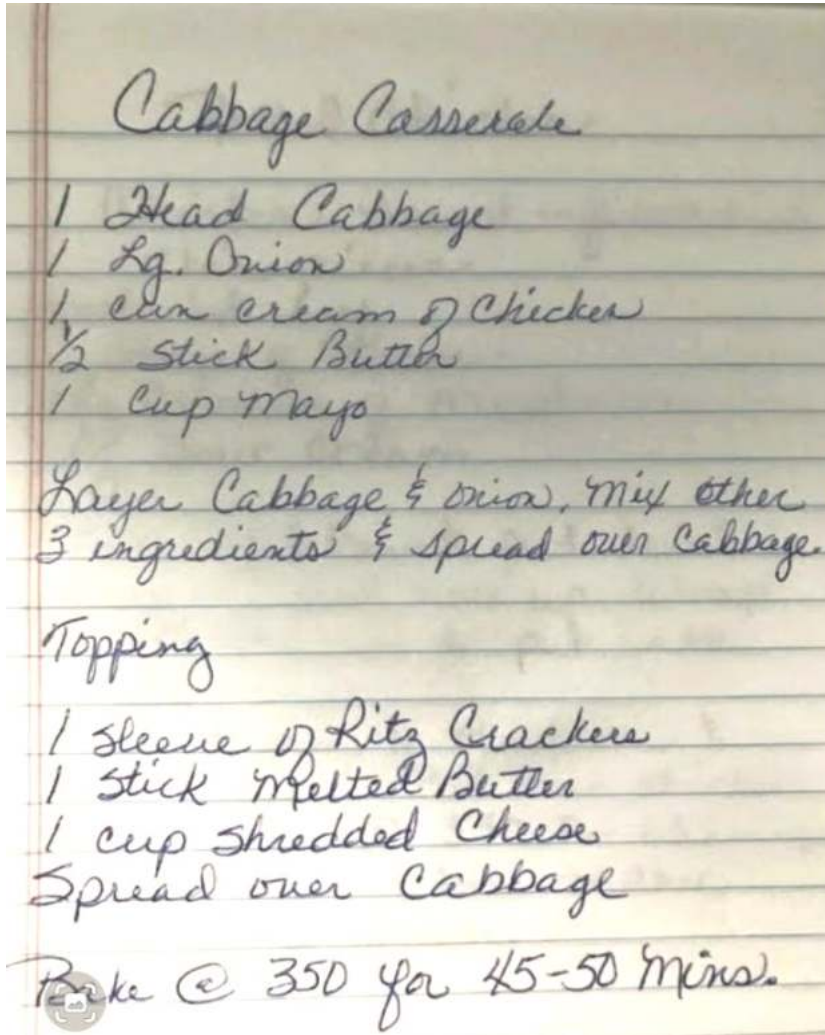 Cabbage Casserole
1 Head Cabbage
1 Lg. Onion
1 can cream of Chicken
1/2 Stick Butter
1 Cup Mayo
Layer Cabbage & onion, Mix other
3 ingredients & spread over Cabbage.
Topping
1 sleeve of Ritz Crackers
1 Stick Melted Butter
1 cup Shredded Cheese
Spread over Cabbage
Bake @ 350 for 45-50 Mins.